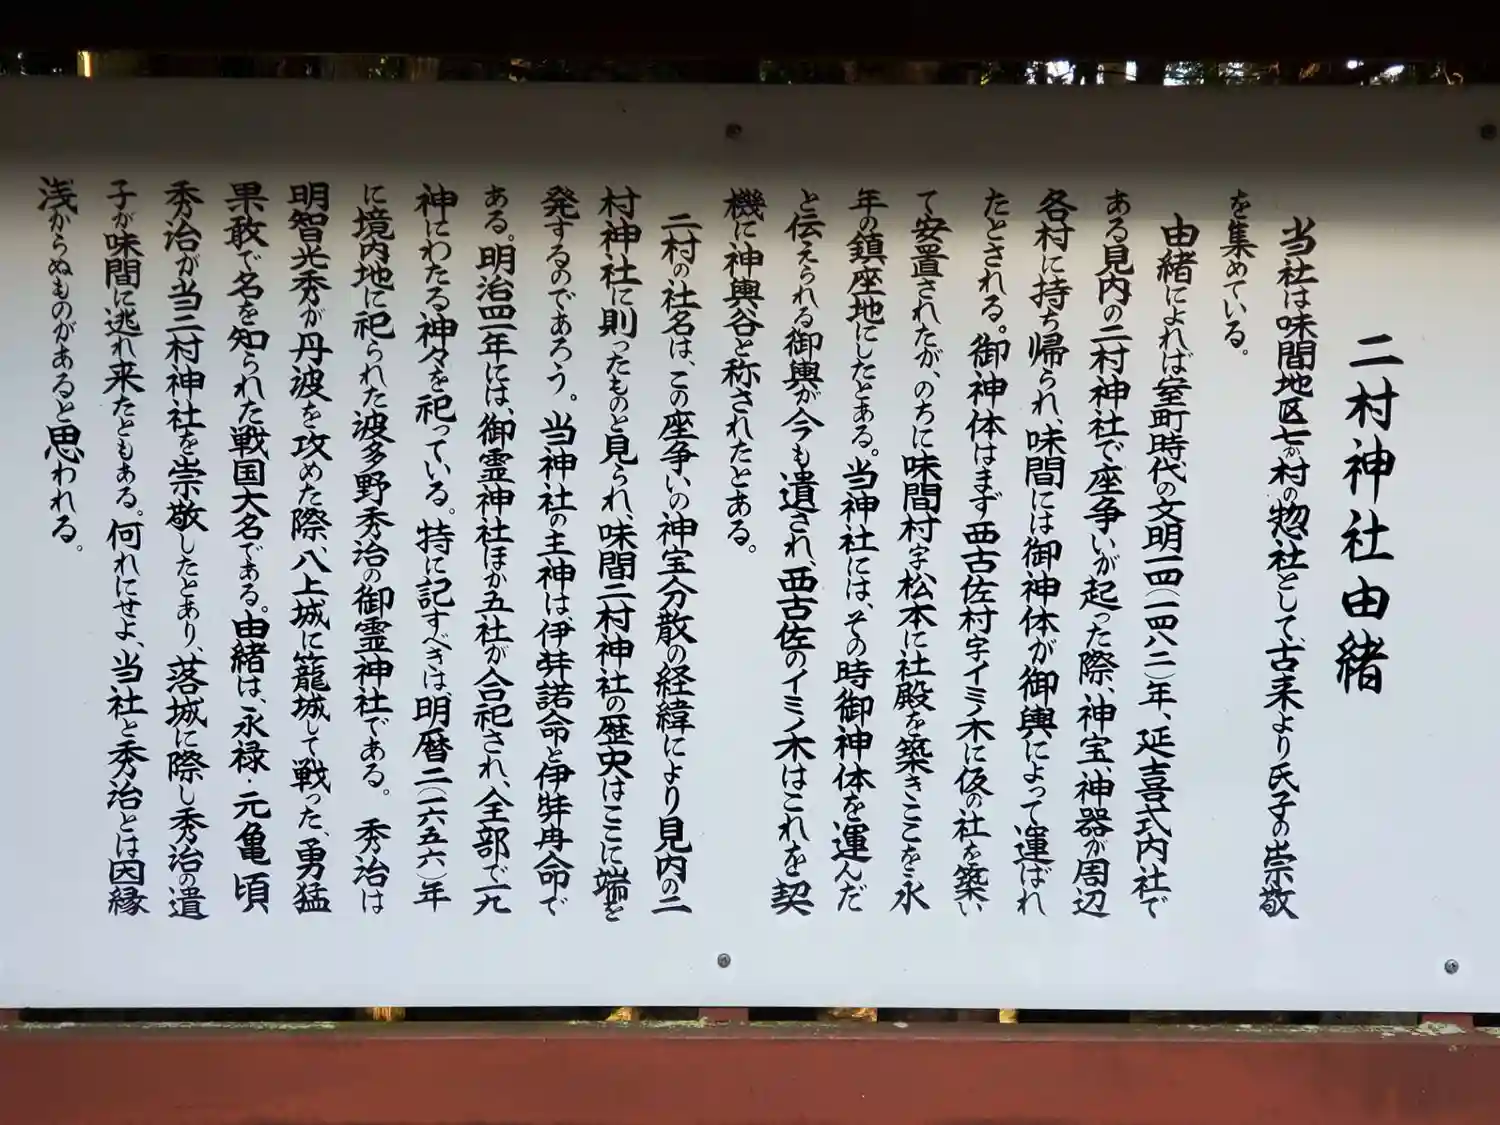 二村神社由緒
当社は味間地区七か村の惣社として、古来より氏子の崇敬
を集めている。
由緒によれば室町時代の文明一四(一四八二)年、延喜式内社で
ある見内の二村神社で座争いが起った際、神宝神器が周辺
各村に持ち帰られ、味間には御神体が御輿によって運ばれ
たとされる。御神体はまず西古佐村字イミノ木に仮の社を築い
て安置されたが、のちに味間村字松本に社殿を築きここを永
年の鎮座地にしたとある。当神社には、その時御神体を運んだ
と伝えられる御輿が今も遺され、西古佐のイミノ木はこれを契
機に神輿谷と称されたとある。
二村の社名は、この座争いの神宝分散の経緯により見内の二
村神社に則ったものと見られ、味間二村神社の歴史はここに端を
発するのであろう。当神社の主神は、伊弉諾命と伊弉冉命で
ある。明治四一年には、御霊神社ほか五社が合祀され、全部で一九
神にわたる神々を祀っている。特に記すべきは、明暦二(一六五六)年
に境内地に祀られた波多野秀治の御霊神社である。秀治は
明智光秀が丹波を攻めた際、八上城に籠城して戦った、勇猛
果敢で名を知られた戦国大名である。由緒は、永禄・元亀頃
秀治が当二村神社を崇敬したとあり、落城に際し秀治の遺
子が味間に逃れ来たともある。何れにせよ、当社と秀治とは因縁
浅からぬものがあると思われる。